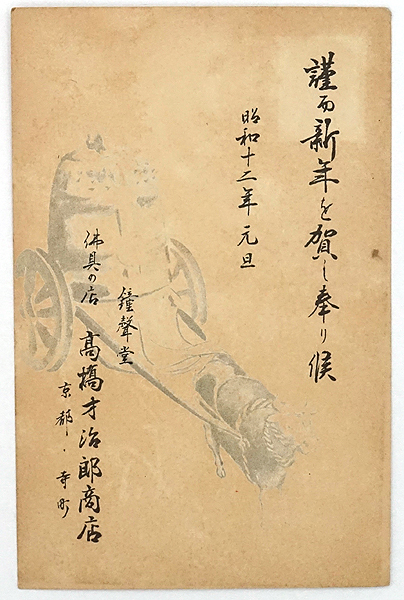 謹而新年を賀し奉り候
昭和十二年 元旦
鐘聲堂
佛具の店
高橋才治郎商店
京都・寺町